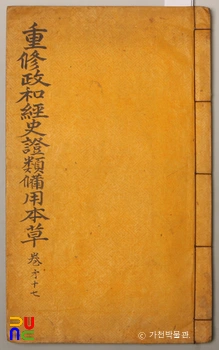 重修政和經史證類備用本草
卷之十七
PUNC
© 가천박물관